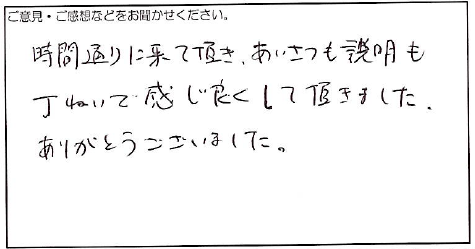 ご意見・ご感想などをお聞かせください。
時間通りに来て頂き、あいさつも説明も
丁ねいで感じ良くして頂きました、
ありがとうございました。